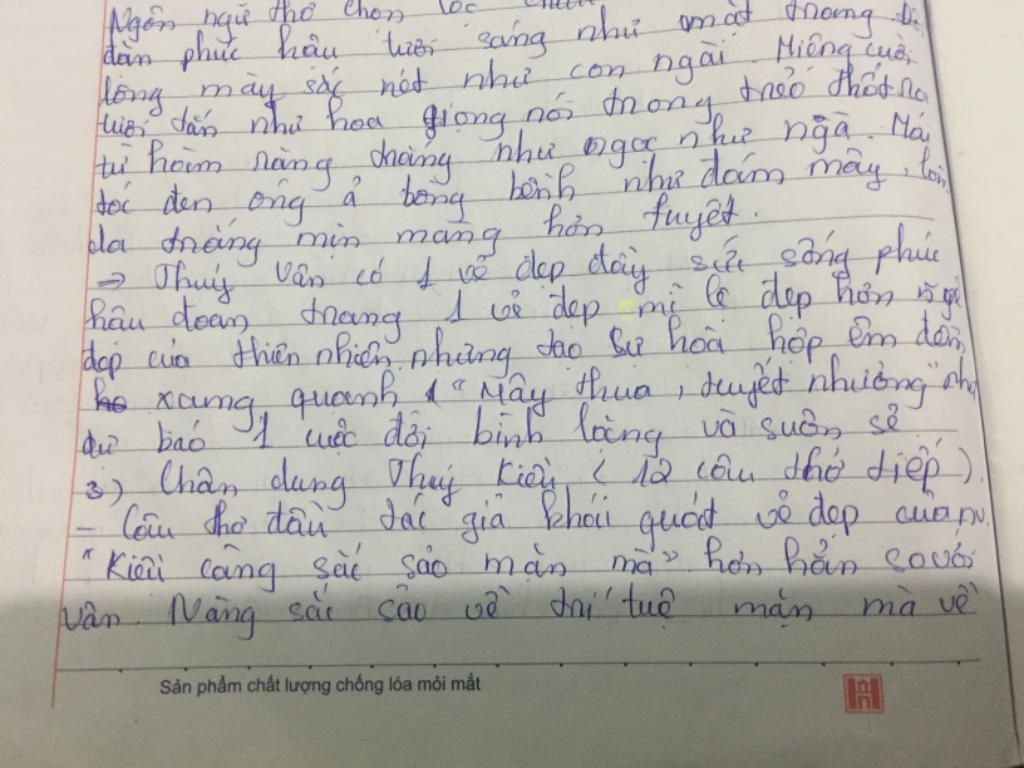 Ngôn ngữ thơ chọn lọc
đàn phúc hâu tươi sáng như mặt trăng
lông mày sắc nét như con ngài. Miệng cười
tươi tắn như hoa giọng nói trong trẻo thốt ra
từ hàm răng trắng như ngọc như ngà. Mái
tóc đen óng ả bồng bềnh như đám mây, làn
da trắng mịn màng hơn tuyết.
→ Thuý Vân có 1 vẻ đẹp đầy sức sống phúc
hâu đoan trang 1 vẻ đẹp mĩ lệ đẹp hơn
đẹp của thiên nhiên nhưng tạo sự hoà hợp êm đềm
xung quanh "Mây thua, tuyết nhường" như
dự báo 1 cuộc đời bình lặng và suôn sẻ
3) Chân dung Thuý Kiều ( 12 câu thơ tiếp ).
- Câu thơ đầu tác giả khái quát vẻ đẹp của nv.
"Kiều càng sắc sảo mặn mà" hơn hẳn so với
Vân. Nàng sắc cảo về trí tuệ mặn mà về
Sản phẩm chất lượng chống lóa mỏi mắt